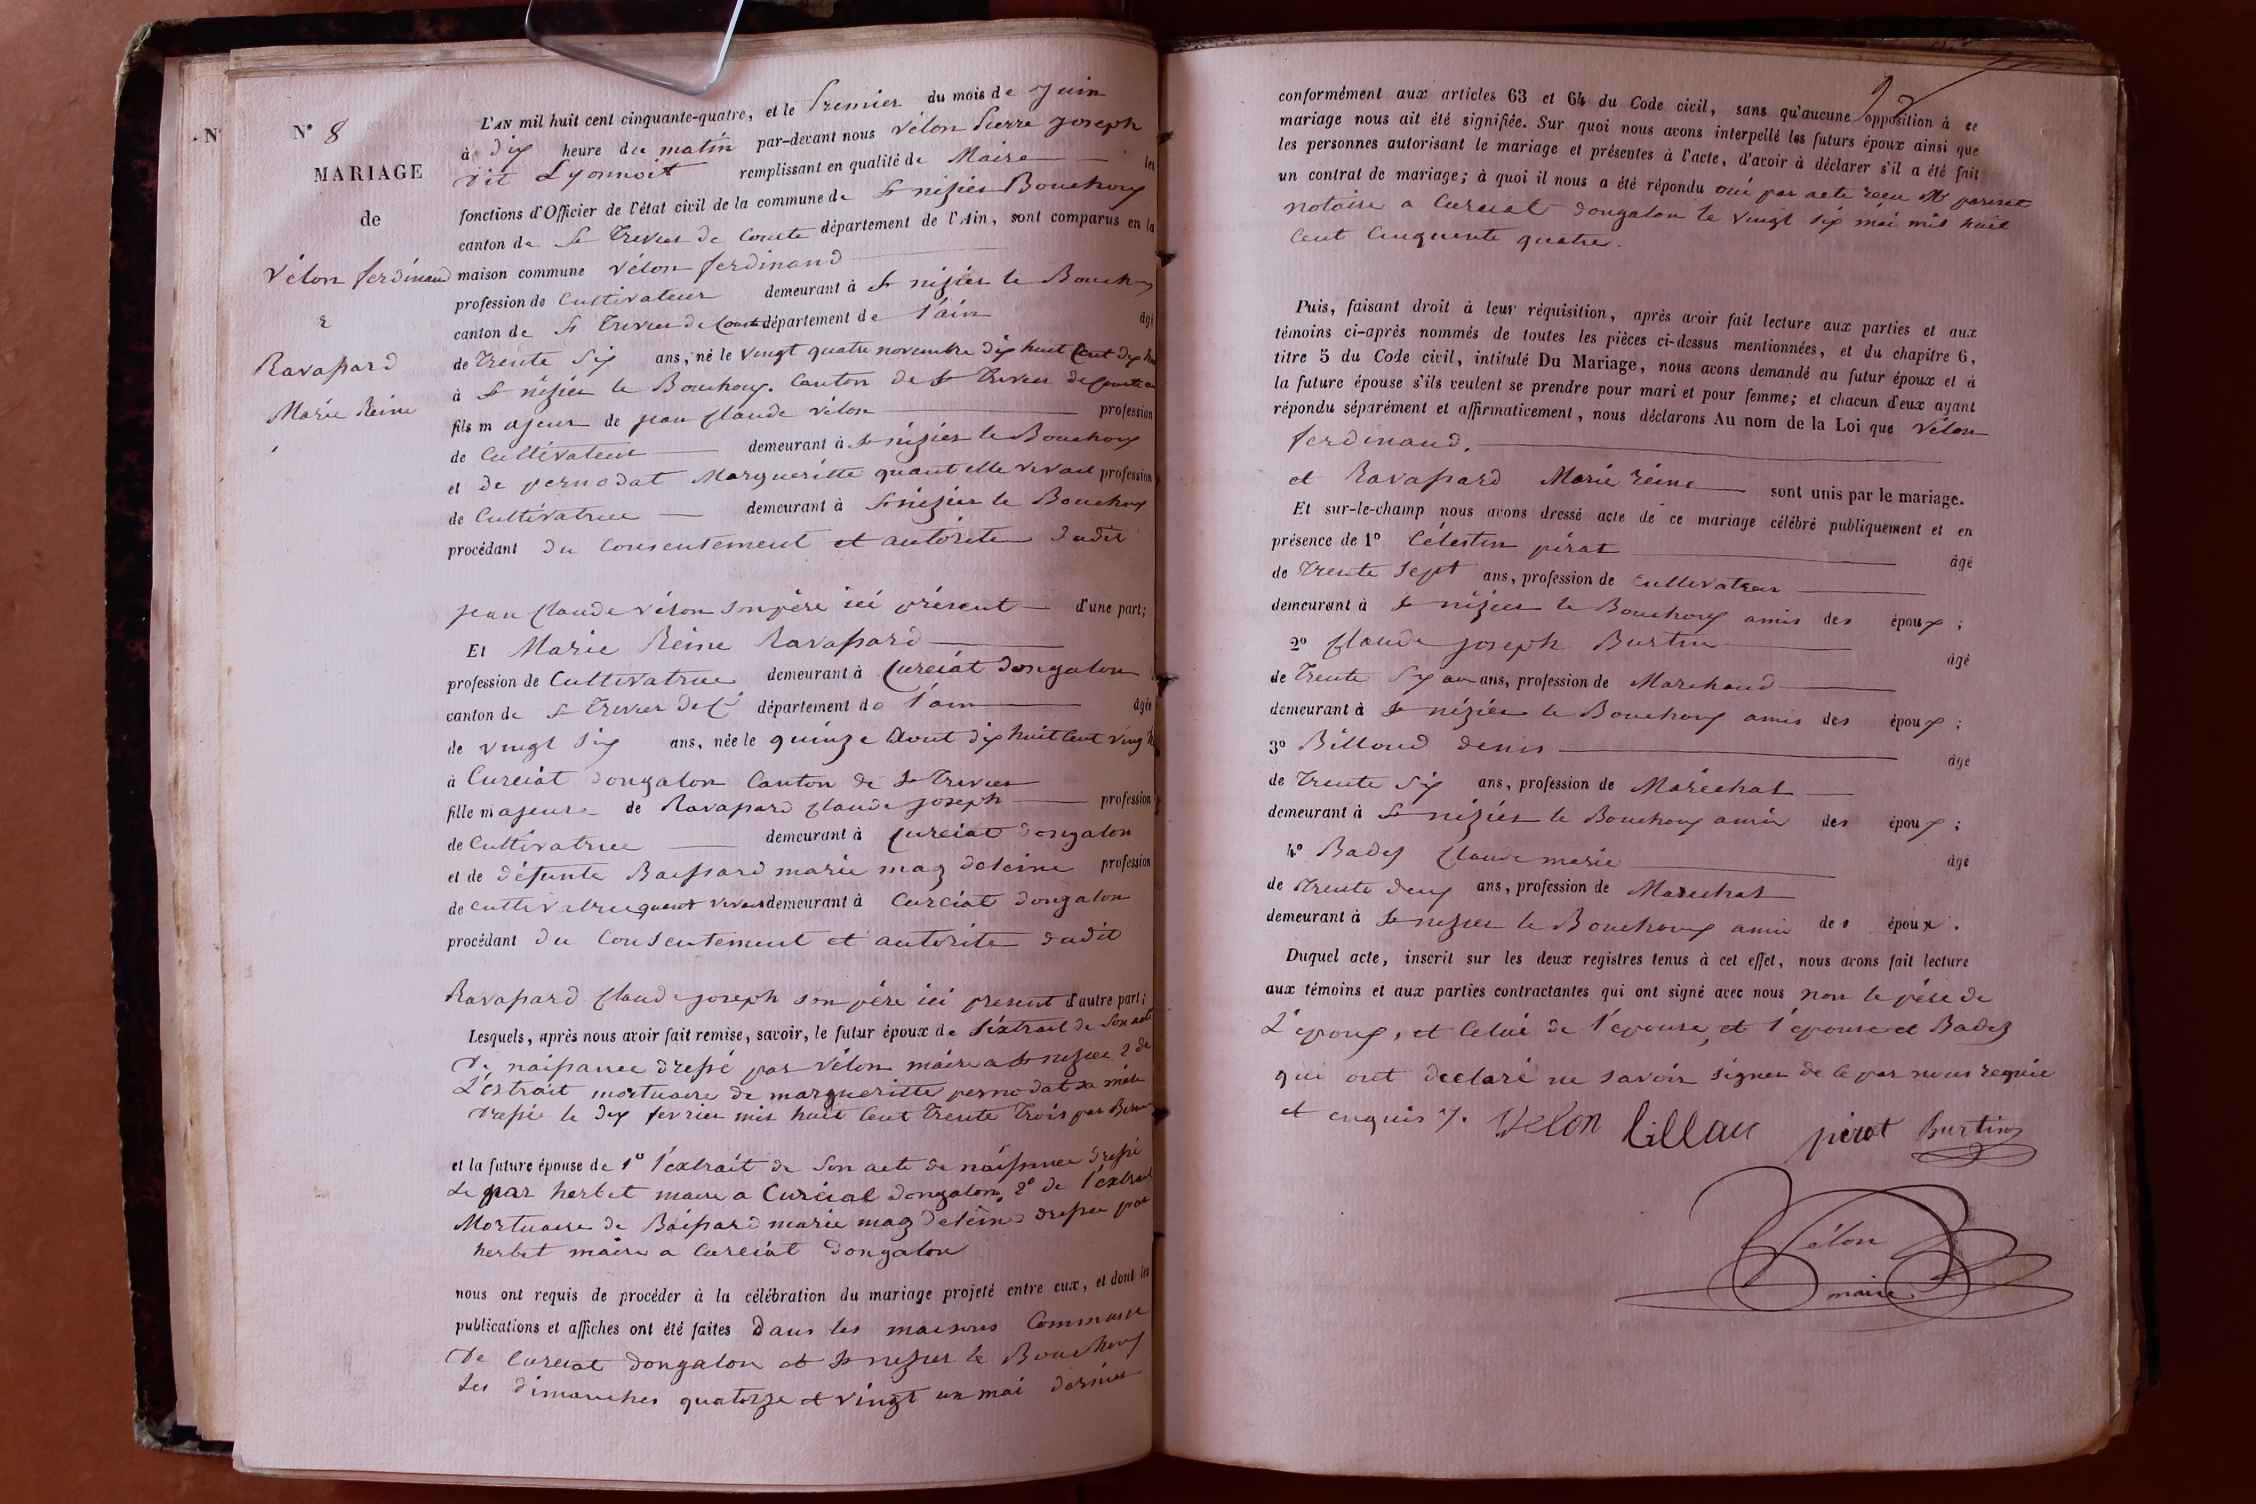 N
N° 8
MARIAGE
de
Vélon ferdinand
&
Ravassard
Marie Reine
L'AN mil huit cent cinquante-quatre, et le Premier du mois de Juin
à dix heure du matin par-devant nous Vélon Pierre Joseph
dit Lyonnoit remplissant en qualité de Maire les
fonctions d'Officier de l'état civil de la commune de St nizier Bouchoux
canton de St Trivier de Courte département de l'Ain, sont comparus en la
maison commune Vélon ferdinand
profession de Cultivateur demeurant à St nizier le Bouchoux
canton de St Trivier de Courte département de l'ain âgé
de Trente Six ans, né le vingt quatre novembre dix huit Cent dix
à St nizier le Bouchoux. Canton de St Trivier de Courte
fils majeur de jean Claude vélon profession
de Cultivateur demeurant à St nizier le Bouchoux
et de pernodat Margueritte quant elle vivait profession
de Cultivatrice demeurant à St nizier le Bouchoux
procédant du Consentement et autorite dudit
jean Claude vélon son père ici présent d'une part;
Et Marie Reine Ravassard
profession de Cultivatrice demeurant à Curciat dongalon
canton de St Trivier de C. département de l'ain âgée
de vingt Six ans, née le quinze Aout dix huit Cent vingt
à Curciat dongalon Canton de St Trivier
fille majeure de Ravassard Claude joseph profession
de Cultivatrice demeurant à Curciat dongalon
et de défunte Baissard marie magdeleine profession
de cultivatrice quant vivait demeurant à Curciat dongalon
procédant du Consentement et autorite dudit
Ravassard Claude joseph son père ici present d'autre part;
Lesquels, après nous avoir fait remise, savoir, le futur époux de l'éxtrait de Son acte
de naissance dressé par vélon maire a St nizier 2 de
L'éxtrait mortuaire de margueritte pernodat sa mère
dressé le dix fevrier mil huit Cent Trente Trois par
et la future épouse de 1° l'éxtrait de Son acte de naissance dressé
le par herbet maire a Curciat dongalon, 2° de l'éxtrait
Mortuaire de Baissard marie magdeleine dressée par
herbet maire a Curciat dongalon
nous ont requis de procéder à la célébration du mariage projeté entre eux, et dont les
publications et affiches ont été faites dans les maisons Commune
de Curciat dongalon et St nizier le Bouchoux
les dimanches quatorze et vingt un mai dernier
conformément aux articles 63 et 64 du Code civil, sans qu'aucune opposition à ce
mariage nous ait été signifiée. Sur quoi nous avons interpellé les futurs époux ainsi que
les personnes autorisant le mariage et présentes à l'acte, d'avoir à déclarer s'il a été fait
un contrat de mariage; à quoi il nous a été répondu oui par acte recu Me
notaire a Curciat dongalon le vingt six mai mil huit
Cent Cinquante quatre.
Puis, faisant droit à leur réquisition, après avoir fait lecture aux parties et aux
témoins ci-après nommés de toutes les pièces ci-dessus mentionnées, et du chapitre 6,
titre 5 du Code civil, intitulé Du Mariage, nous avons demandé au futur époux et à
la future épouse s'ils veulent se prendre pour mari et pour femme; et chacun d'eux ayant
répondu séparément et affirmaticement, nous déclarons Au nom de la Loi que Vélon
ferdinand.
et Ravassard Marie reine sont unis par le mariage.
Et sur-le-champ nous avons dressé acte de ce mariage célébré publiquement et en
présence de 1° Célestin pérat âgé
de Trente Sept ans, profession de Cultivateur
demeurant à St nizier le Bouchoux amis des époux;
2° Claude joseph Burtin âgé
de Trente Six ans, profession de Marchand
demeurant à St nézier le Bouchoux amis des époux;
3° Billoud denis âgé
de Trente Six ans, profession de Maréchal
demeurant à St nizier le Bouchoux amis des époux;
4° Badez Claude marie âgé
de Trente deux ans, profession de Marechal
demeurant à St nizier le Bouchoux amis des époux.
Duquel acte, inscrit sur les deux registres tenus à cet effet, nous avons fait lecture
aux témoins et aux parties contractantes qui ont signé avec nous non le père de
L'époux, et Celui de l'épouse, et l'épouse et Badez
qui ont déclaré ne savoir signer de ce par nous requis
et enquis
Velon pérat burtin
Vélon
maire